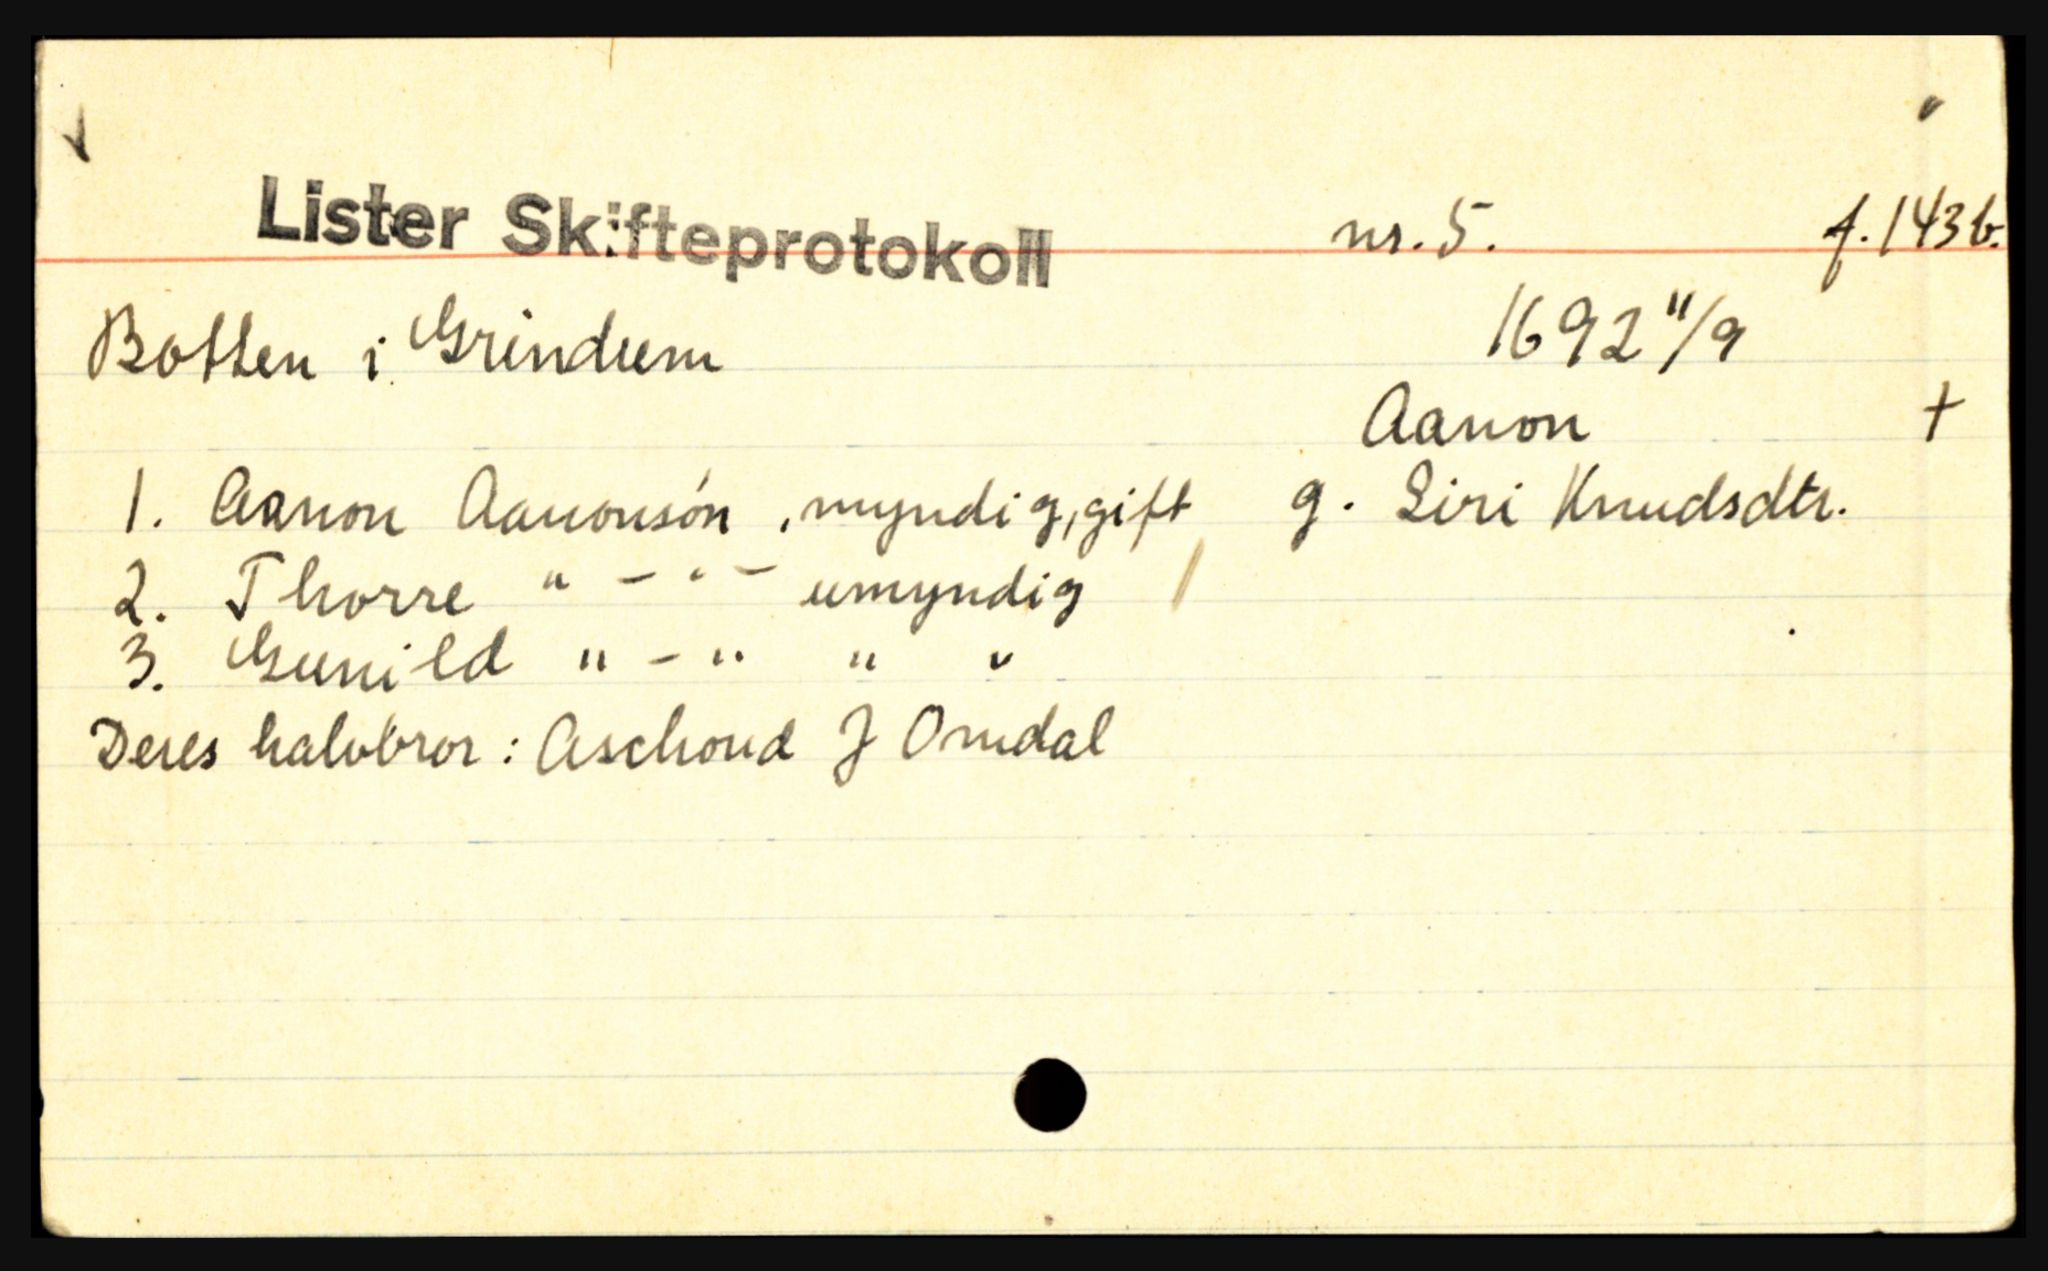 Lister Skifteprotokoll nr. 5. f. 143b.
Botten i Grindum 1692 11/9
Aanon +
1. Aanon Aanonsøn, myndig, gift g. Siri Knudsdtr.
2. Thorre " - " - umyndig
3. Gunild " - " " "
Deres halvbror: Aschoud J Omdal